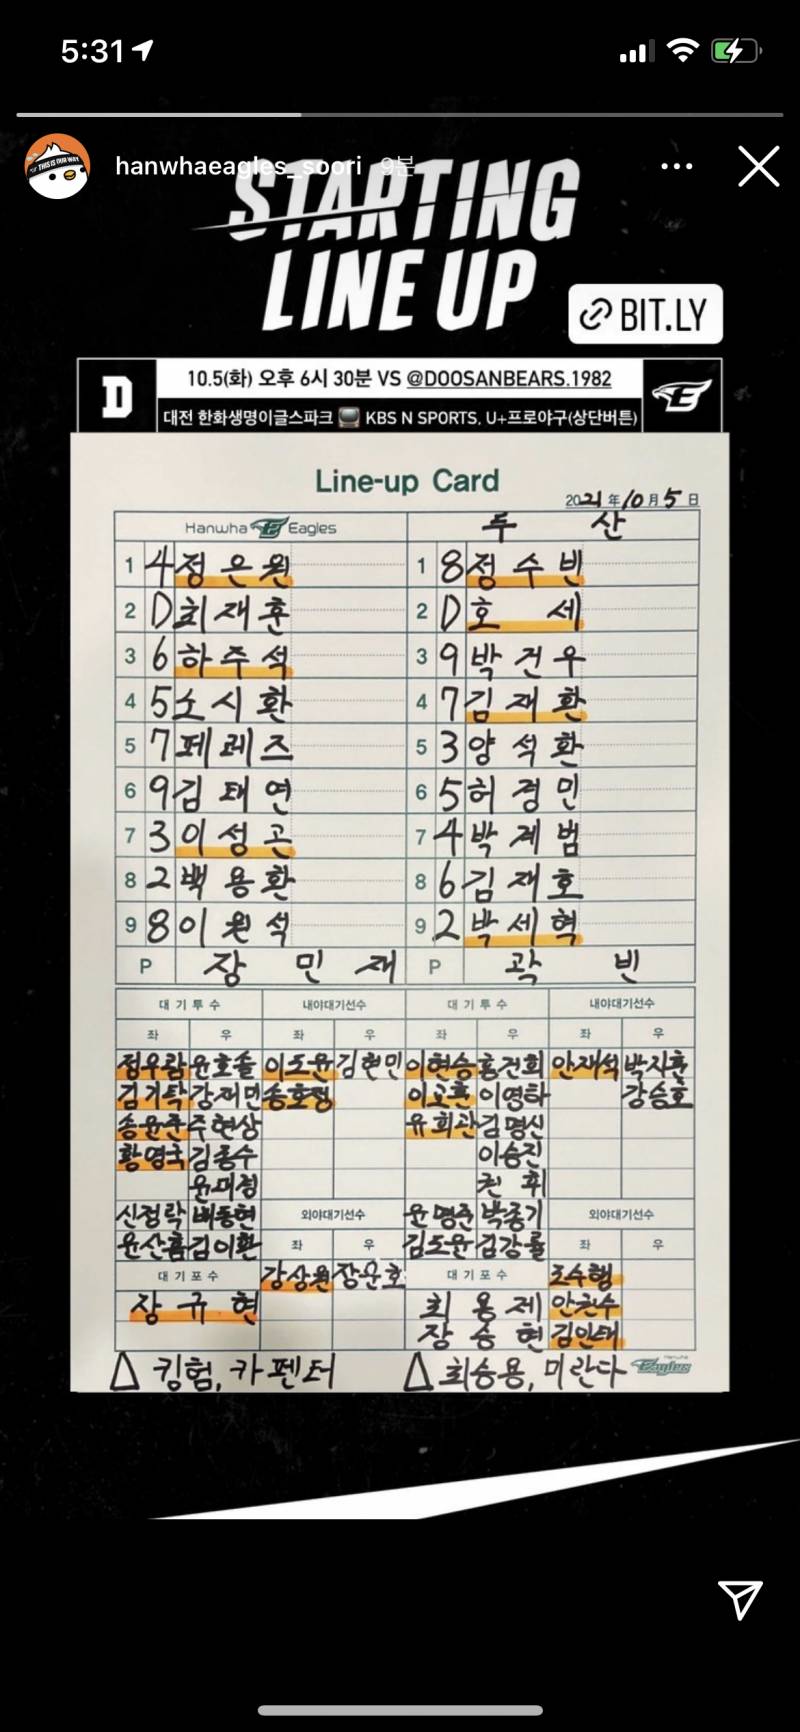 5:31
hanwhaeagles_soori 9분
STARTING
LINE UP
BIT.LY
D 10.5(화) 오후 6시 30분 VS @DOOSANBEARS.1982 E
대전 한화생명이글스파크 KBS N SPORTS, U+프로야구(상단버튼)
Line-up Card
2021年10月5日
Hanwha Eagles 두산
1 4 정은원 1 8 정수빈
2 D 최재훈 2 D 호세
3 6 하주석 3 9 박건우
4 5 노시환 4 7 김재환
5 7 페레즈 5 3 양석환
6 9 김태연 6 5 허경민
7 3 이성곤 7 4 박계범
8 2 백용환 8 6 김재호
9 8 이원석 9 2 박세혁
P 장민재 P 곽빈
대기투수 내야대기선수 대기투수 내야대기선수
좌 우 좌 우 좌 우 좌 우
정우람 윤호솔 이도윤 김현민 이현승 홍건희 안재석 박지훈
김기탁 강재민 송호정 이교훈 이영하 강승호
송윤준 주현상 유희관 김명신
황영국 김종수 이승진
윤대경 권휘
신정락 배동현 외야대기선수 윤명준 박종기 외야대기선수
윤산흠 김이환 좌 우 김도윤 김강률 좌 우
대기포수 강상원 장운호 대기포수 조수행
장규현 최용제 안권수
장승현 김인태
△ 킹험, 카펜터 △ 최승용, 미란다 Eagles